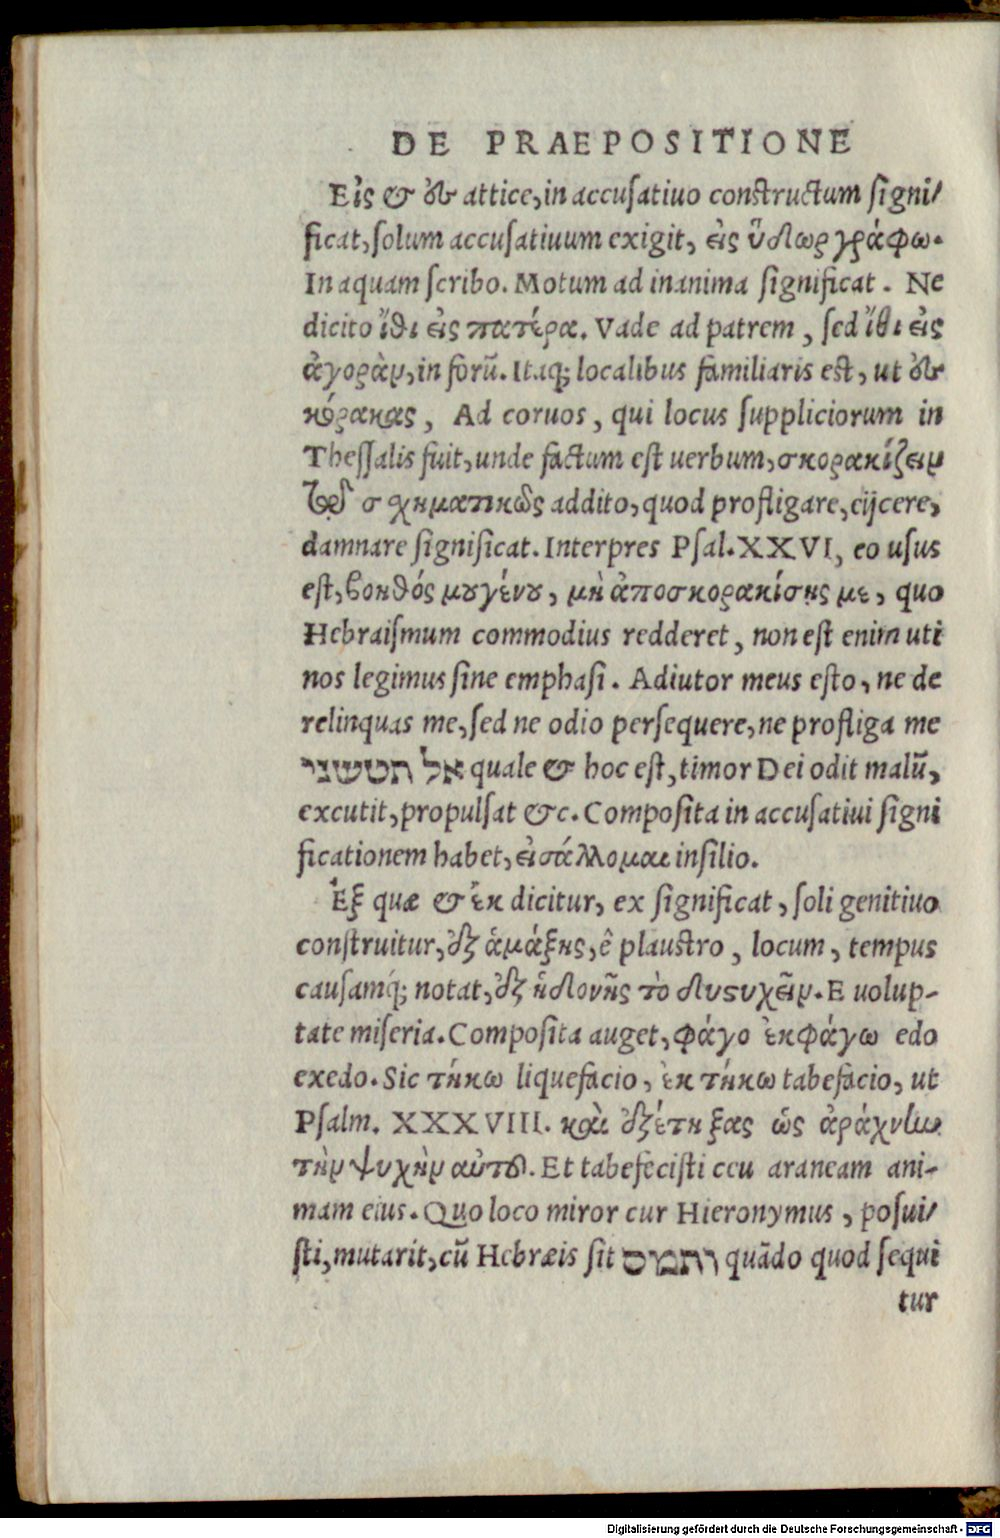 DE PRAEPOSITIONE
Εἰς & ἐς attice, in accusatiuo constructum signi/
ficat, solum accusatiuum exigit, εἰς ὕδωρ γράφω.
In aquam scribo. Motum ad inanima significat. Ne
dicito ἴθι εἰς πατέρα. Vade ad patrem, sed ἴθι εἰς
ἀγορὰν, in forũ. Itaq; localibus familiaris est, ut ἐς
κόρακας, Ad coruos, qui locus suppliciorum in
Thessalis fuit, unde factum est uerbum, σκορακίζειν
σχηματικῶς addito, quod profligare, eijcere,
damnare significat. Interpres Psal. XXVI, eo usus
est, βοηθός μου γένου, μὴ ἀποσκορακίσῃς με, quo
Hebraismum commodius redderet, non est enim uti
nos legimus sine emphasi. Adiutor meus esto, ne de
relinquas me, sed ne odio persequere, ne profliga me
אל תטשני quale & hoc est, timor Dei odit malũ,
excutit, propulsat &c. Composita in accusatiui signi
ficationem habet, εἰσάλλομαι insilio.
Ἐξ quæ & ἐκ dicitur, ex significat, soli genitiuo
construitur, ἐξ ἁμάξης, ê plaustro, locum, tempus
causamq́; notat, ἐξ ἡδονῆς τὸ δυςυχεῖν. E uolup-
tate miseria. Composita auget, φάγο ἐκφάγω edo
exedo. Sic τήκω liquefacio, ἐκτήκω tabefacio, ut
Psalm. XXXVIII. καὶ ἐξέτηξας ὡς ἀράχνην
τὴν ψυχὴν αὐτοῦ. Et tabefecisti ceu araneam ani-
mam eius. Quo loco miror cur Hieronymus, posui/
sti, mutarit, cũ Hebræis sit ותמס quãdo quod sequi
tur
Digitalisierung gefördert durch die Deutsche Forschungsgemeinschaft - DFG